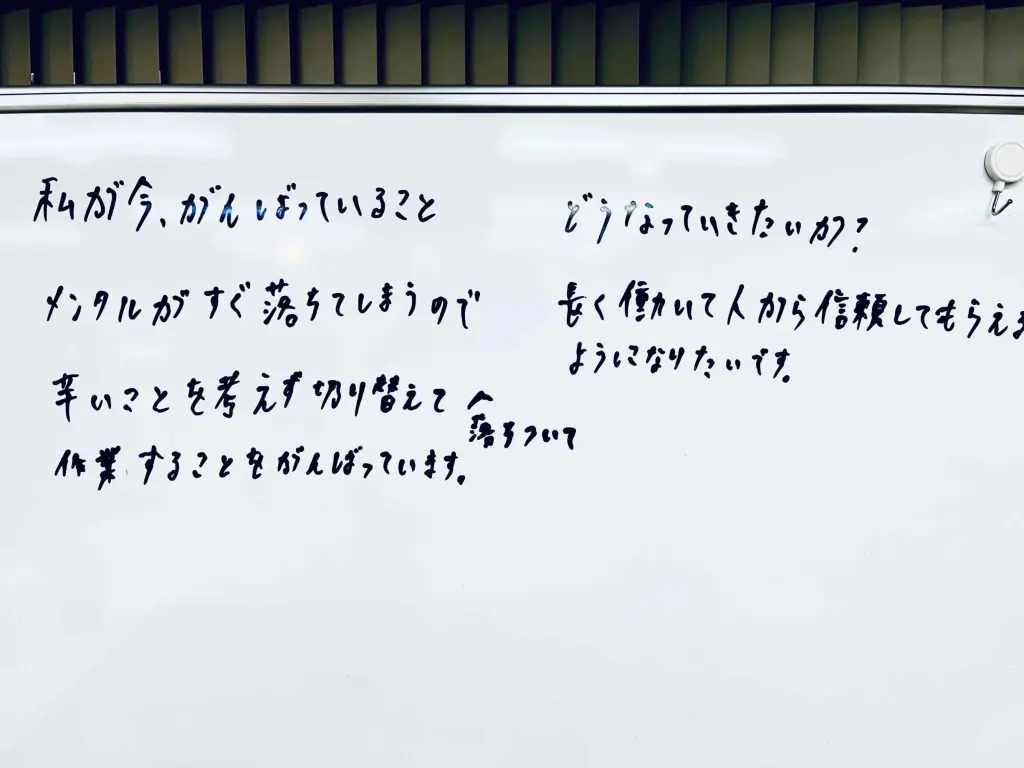 私が今、がんばっていること
メンタルがすぐ落ちてしまうので
辛いことを考えず切り替えて
落ちついて
作業することをがんばっています。
どうなっていきたいか?
長く働いて人から信頼してもらえる
ようになりたいです。